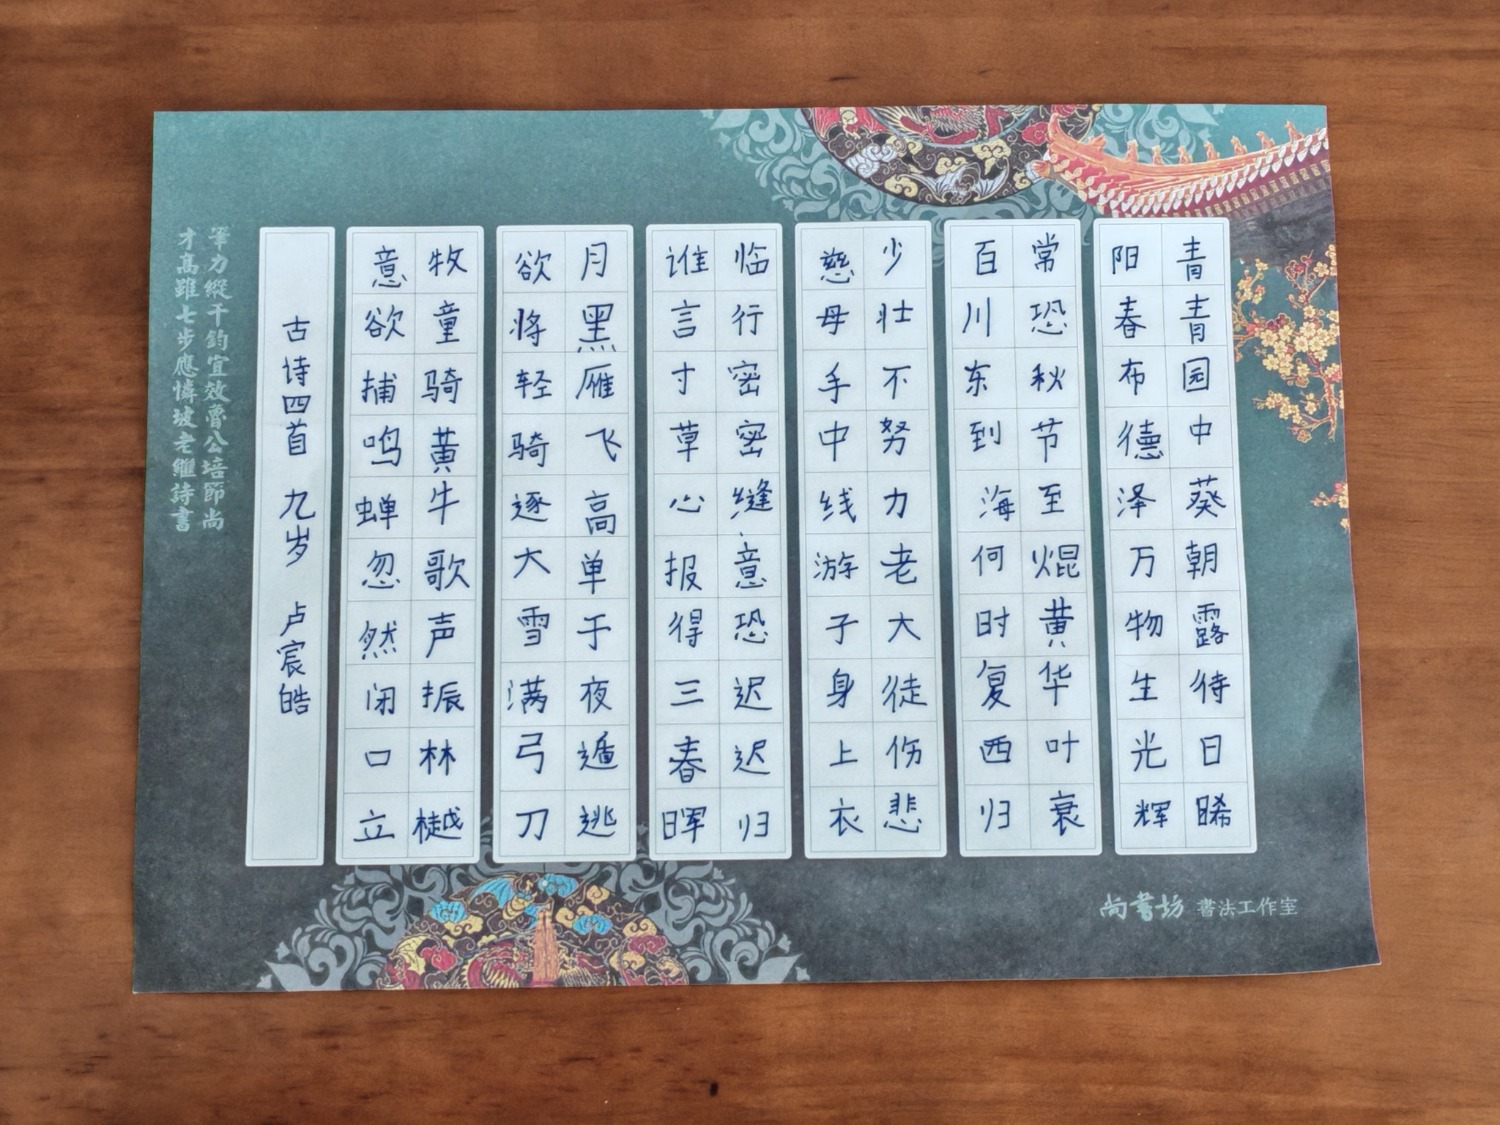 青青园中葵朝露待日晞
阳春布德泽万物生光辉
常恐秋节至焜黄华叶衰
百川东到海何时复西归
少壮不努力老大徒伤悲
慈母手中线游子身上衣
临行密密缝意恐迟迟归
谁言寸草心报得三春晖
月黑雁飞高单于夜遁逃
欲将轻骑逐大雪满弓刀
牧童骑黄牛歌声振林樾
意欲捕鸣蝉忽然闭口立
古诗四首 九岁 卢宸皓
筆力縱千鈞宜效魯公培節尚
才高雖七步應憐坡老繼詩書
尚書坊 書法工作室